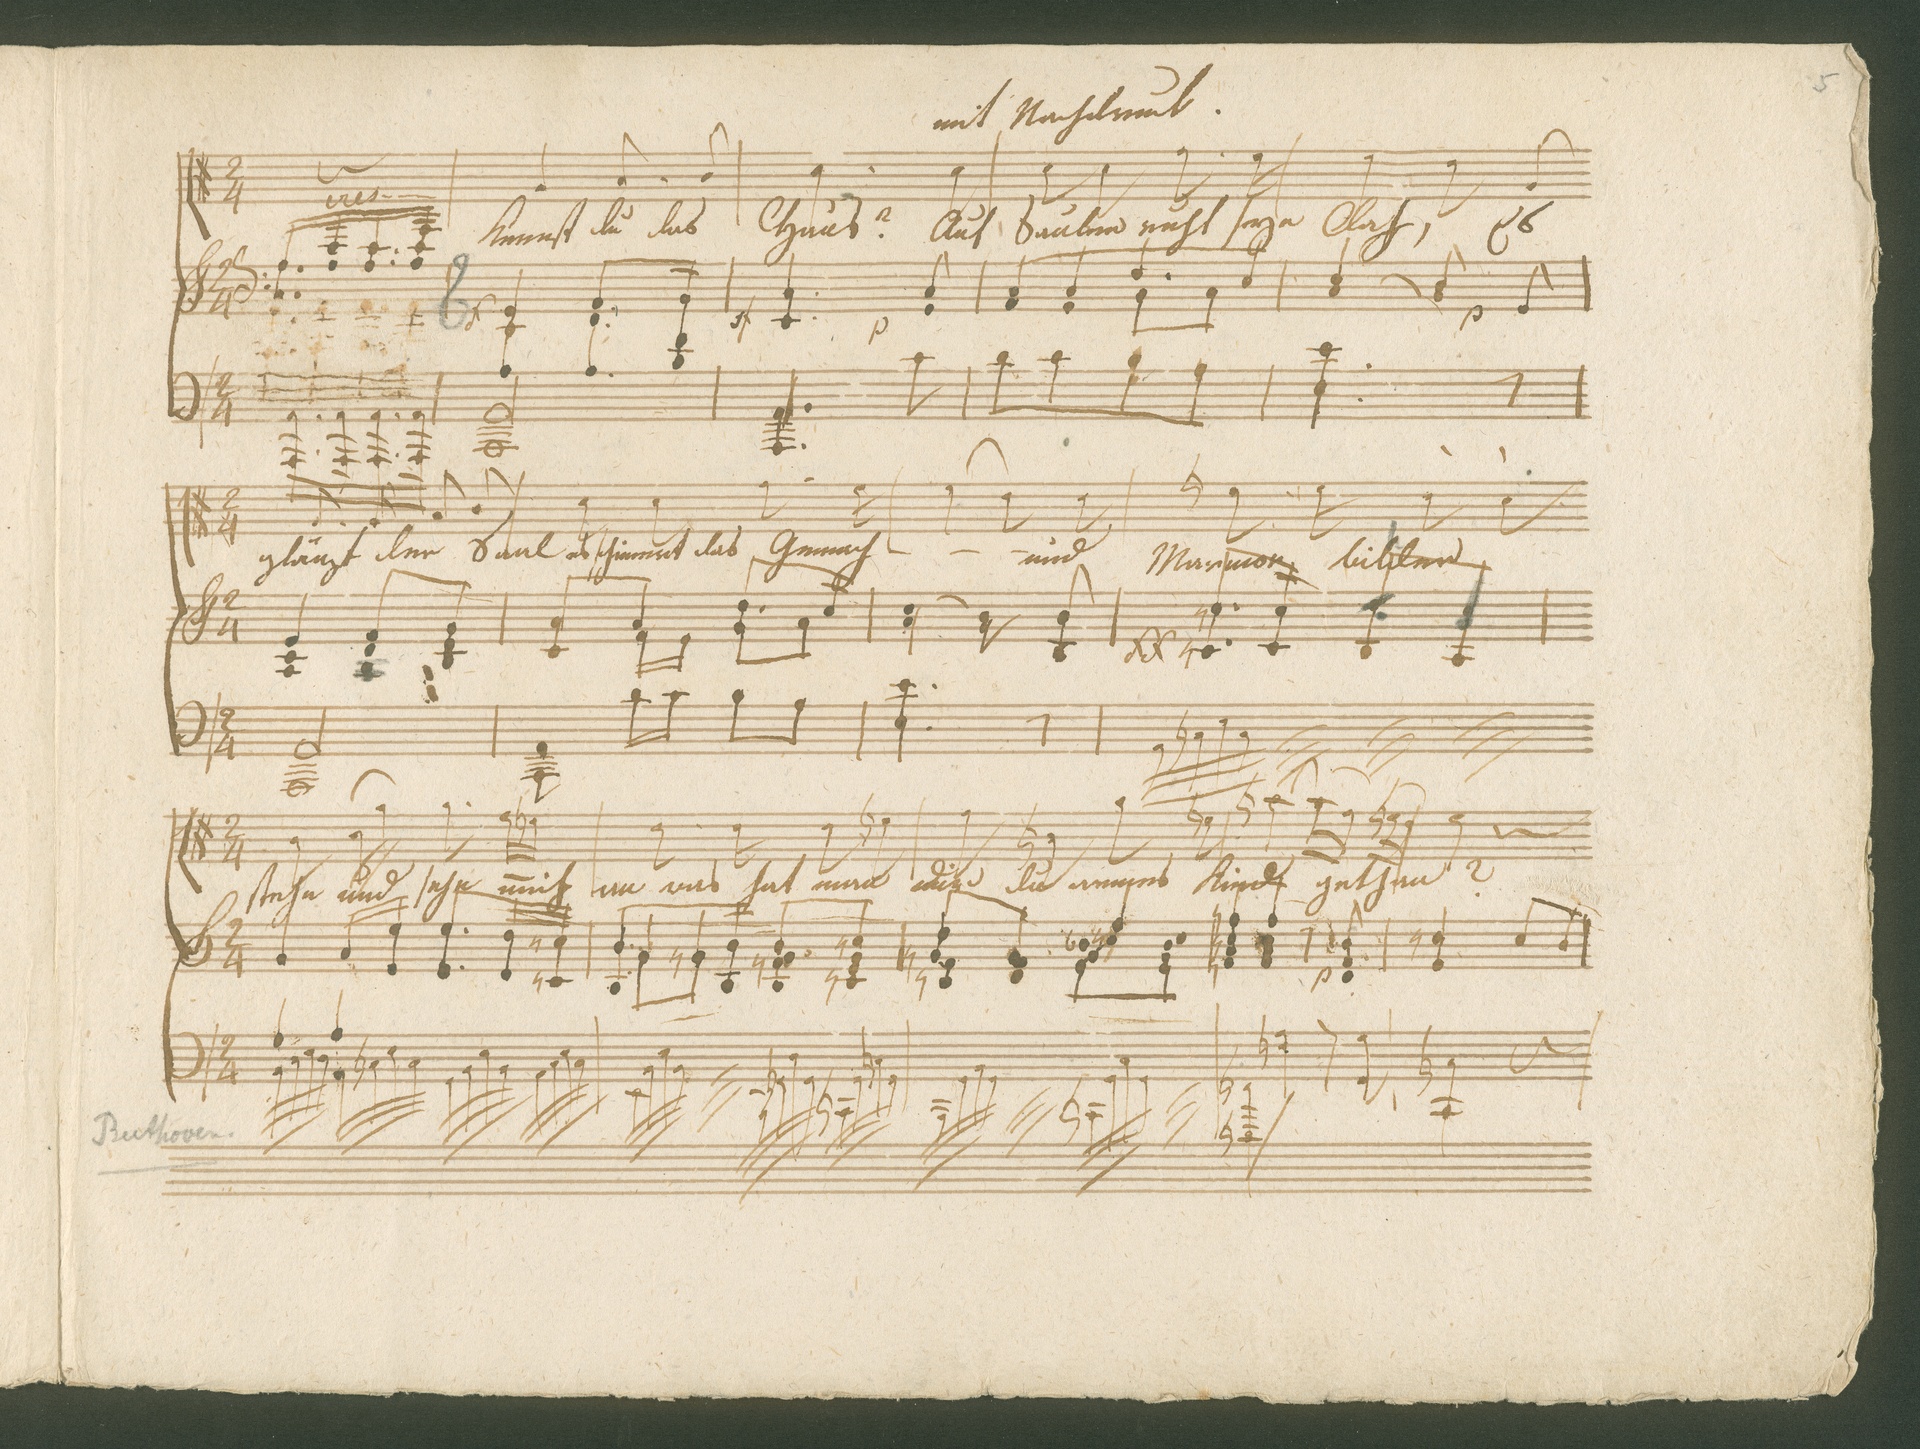 5
mit Nachdruck.
cres-
Kennst du das Haus? Auf Säulen ruht sein Dach, Es
8
sf sf p p
glänzt der Saal es schimmert das Gemach - - und Marmor bilder
ff
stehn und sehn mich an was hat man dir du armes Kind gethan?
p
Beethoven.